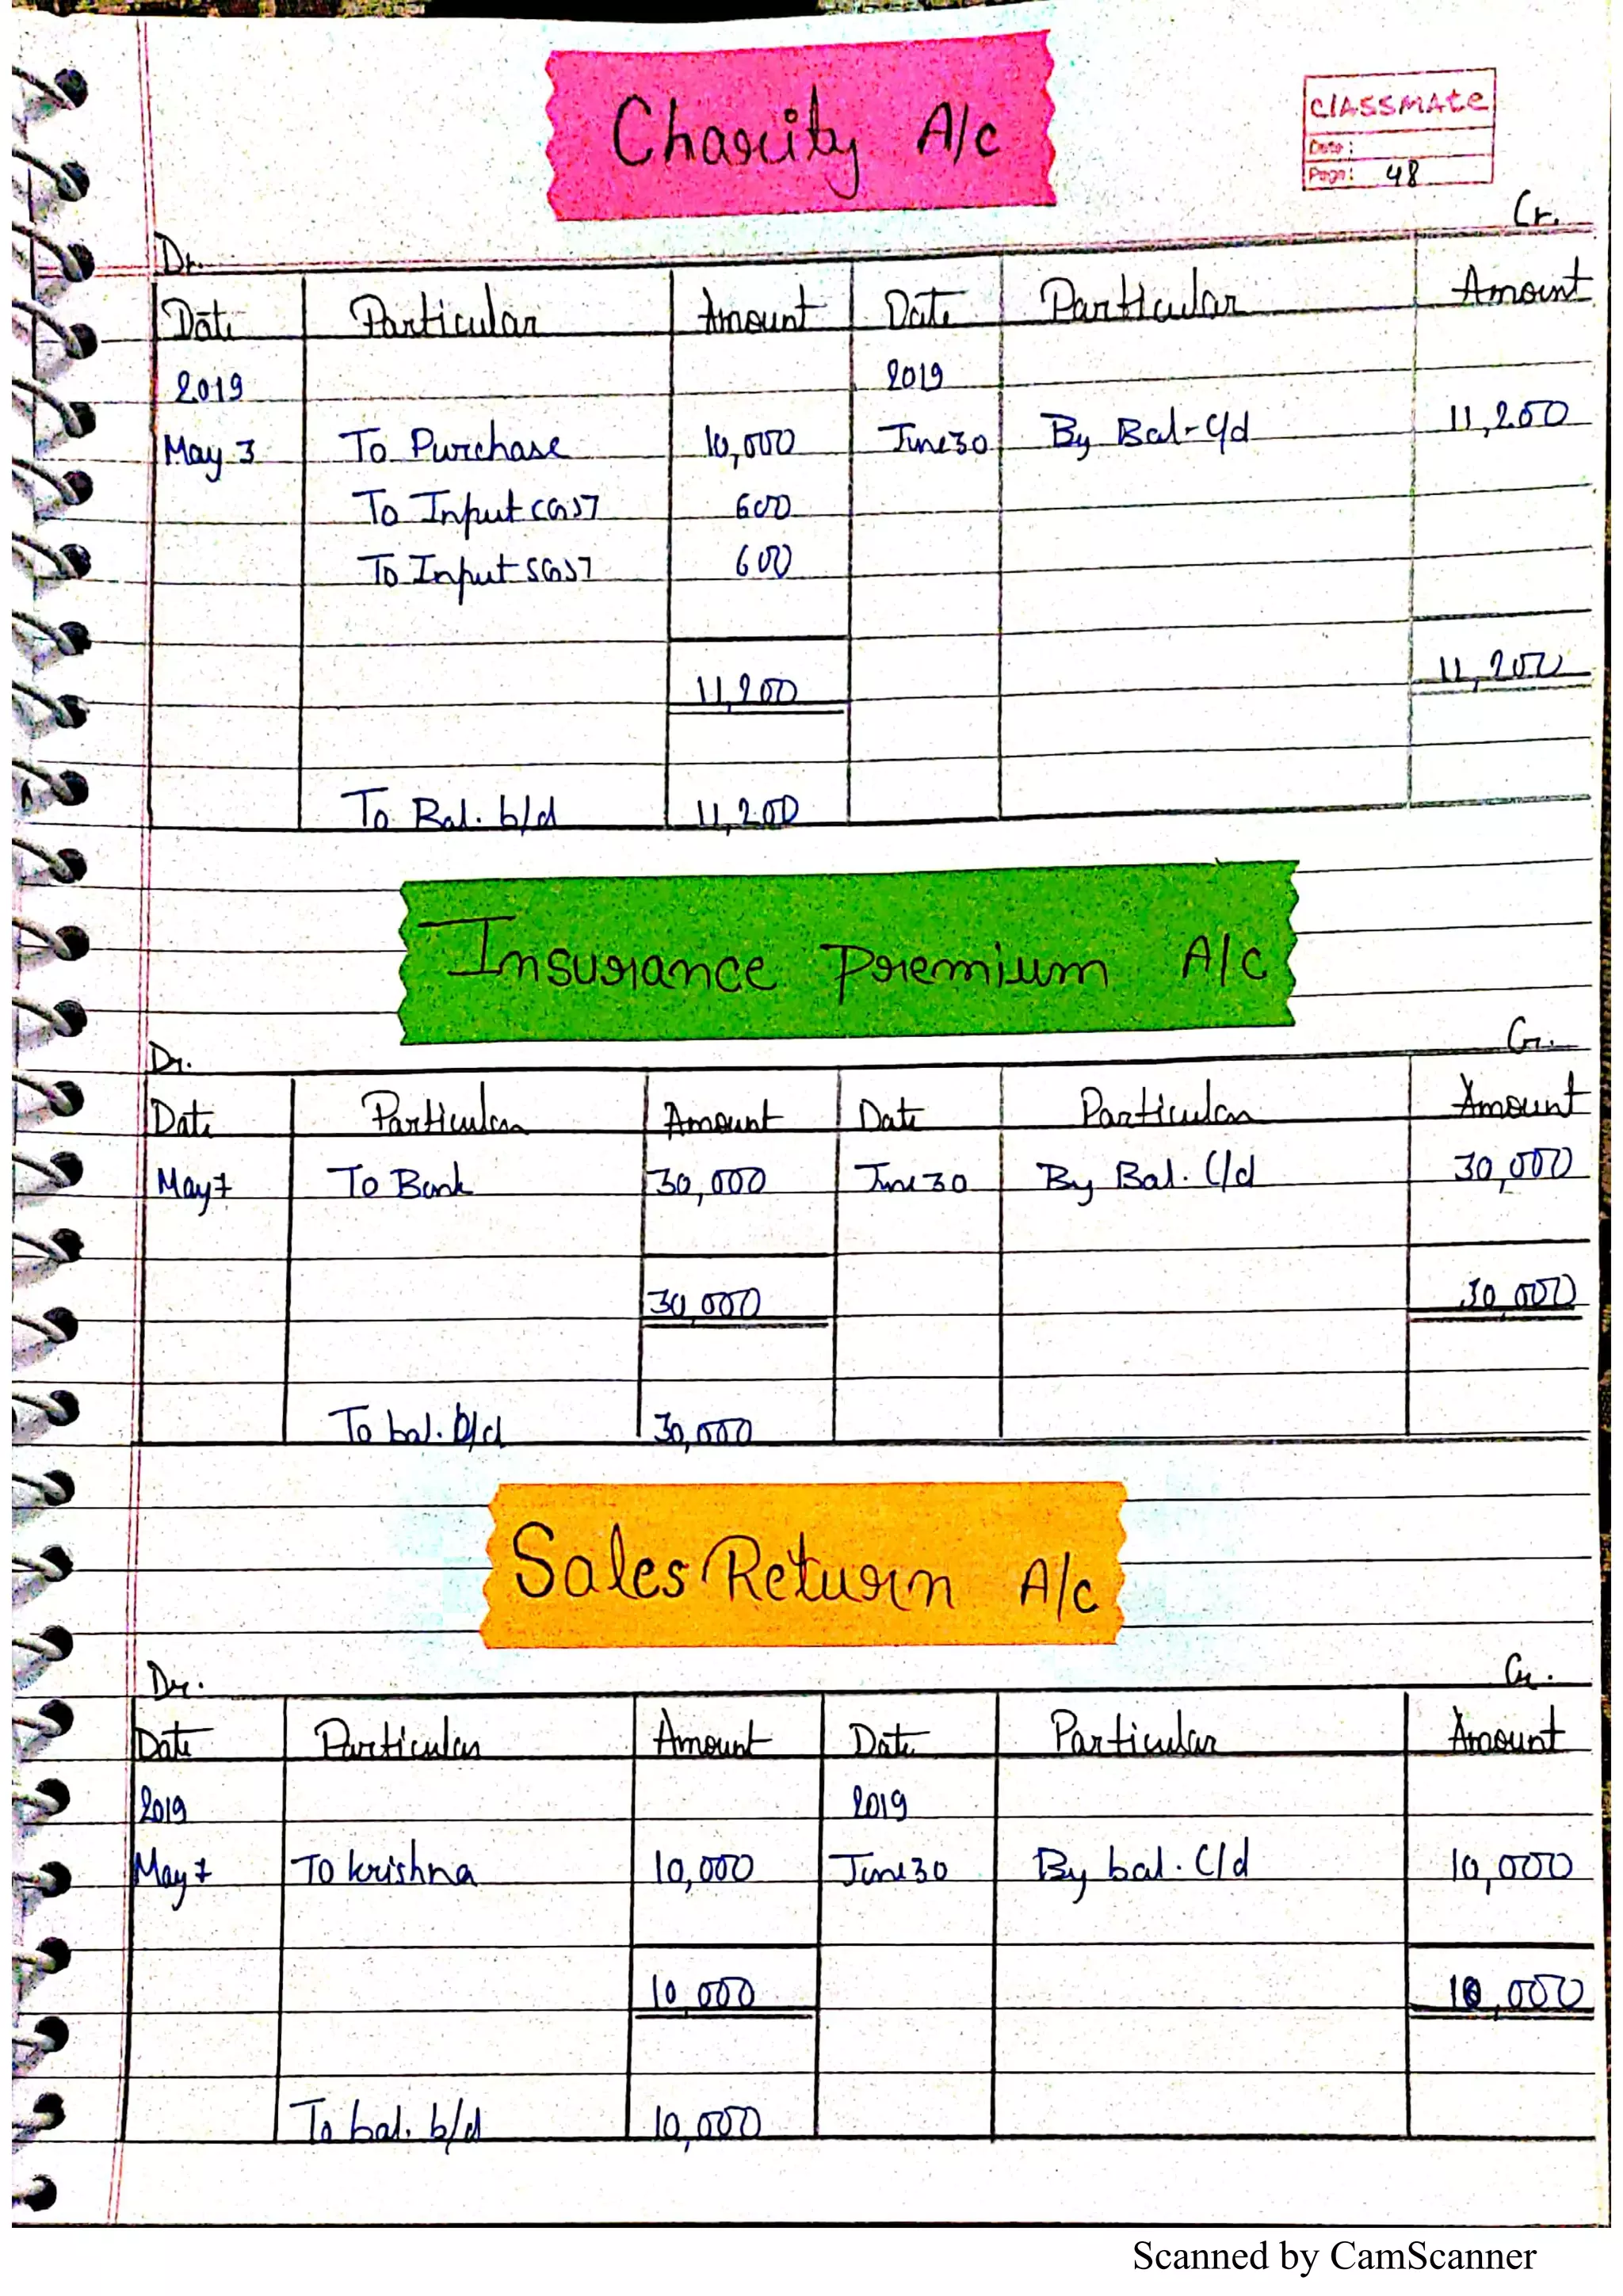 Charity A/c
CLASSMATE
Date:
Page: 48
Dr. Cr.
Date Particular Amount Date Particular Amount
2019 2019
May 3 To Purchase 10,000 June 30 By Bal-C/d 11,200
To Input CGST 600
To Input SGST 600
11,200 11,200
To Bal. b/d 11,200
Insurance Premium A/c
Dr. Cr.
Date Particular Amount Date Particular Amount
May 7 To Bank 30,000 June 30 By Bal. C/d 30,000
30,000 30,000
To bal. b/d 30,000
Sales Return A/c
Dr. Cr.
Date Particular Amount Date Particular Amount
2019 2019
May 7 To krishna 10,000 June 30 By bal. C/d 10,000
10,000 10,000
To bal. b/d 10,000
Scanned by CamScanner